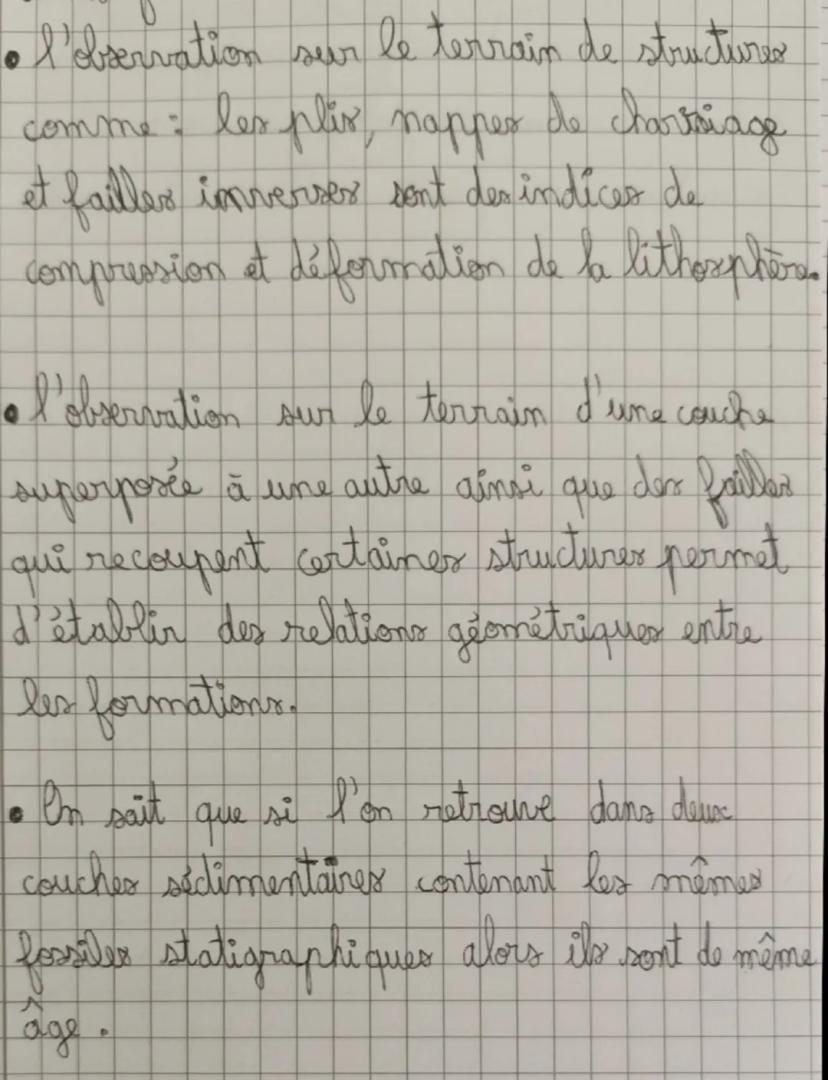 • l'observation sur le terrain de structures
comme : les plis, nappes de charriage
et failles inverses sont des indices de
compression et déformation de la lithosphère.
• l'observation sur le terrain d'une couche
superposée à une autre ainsi que des failles
qui recoupent certaines structures permet
d'établir des relations géométriques entre
les formations.
• On sait que si l'on retrouve dans deux
couches sédimentaires contenant les mêmes
fossiles statigraphiques alors ils sont de même
âge.